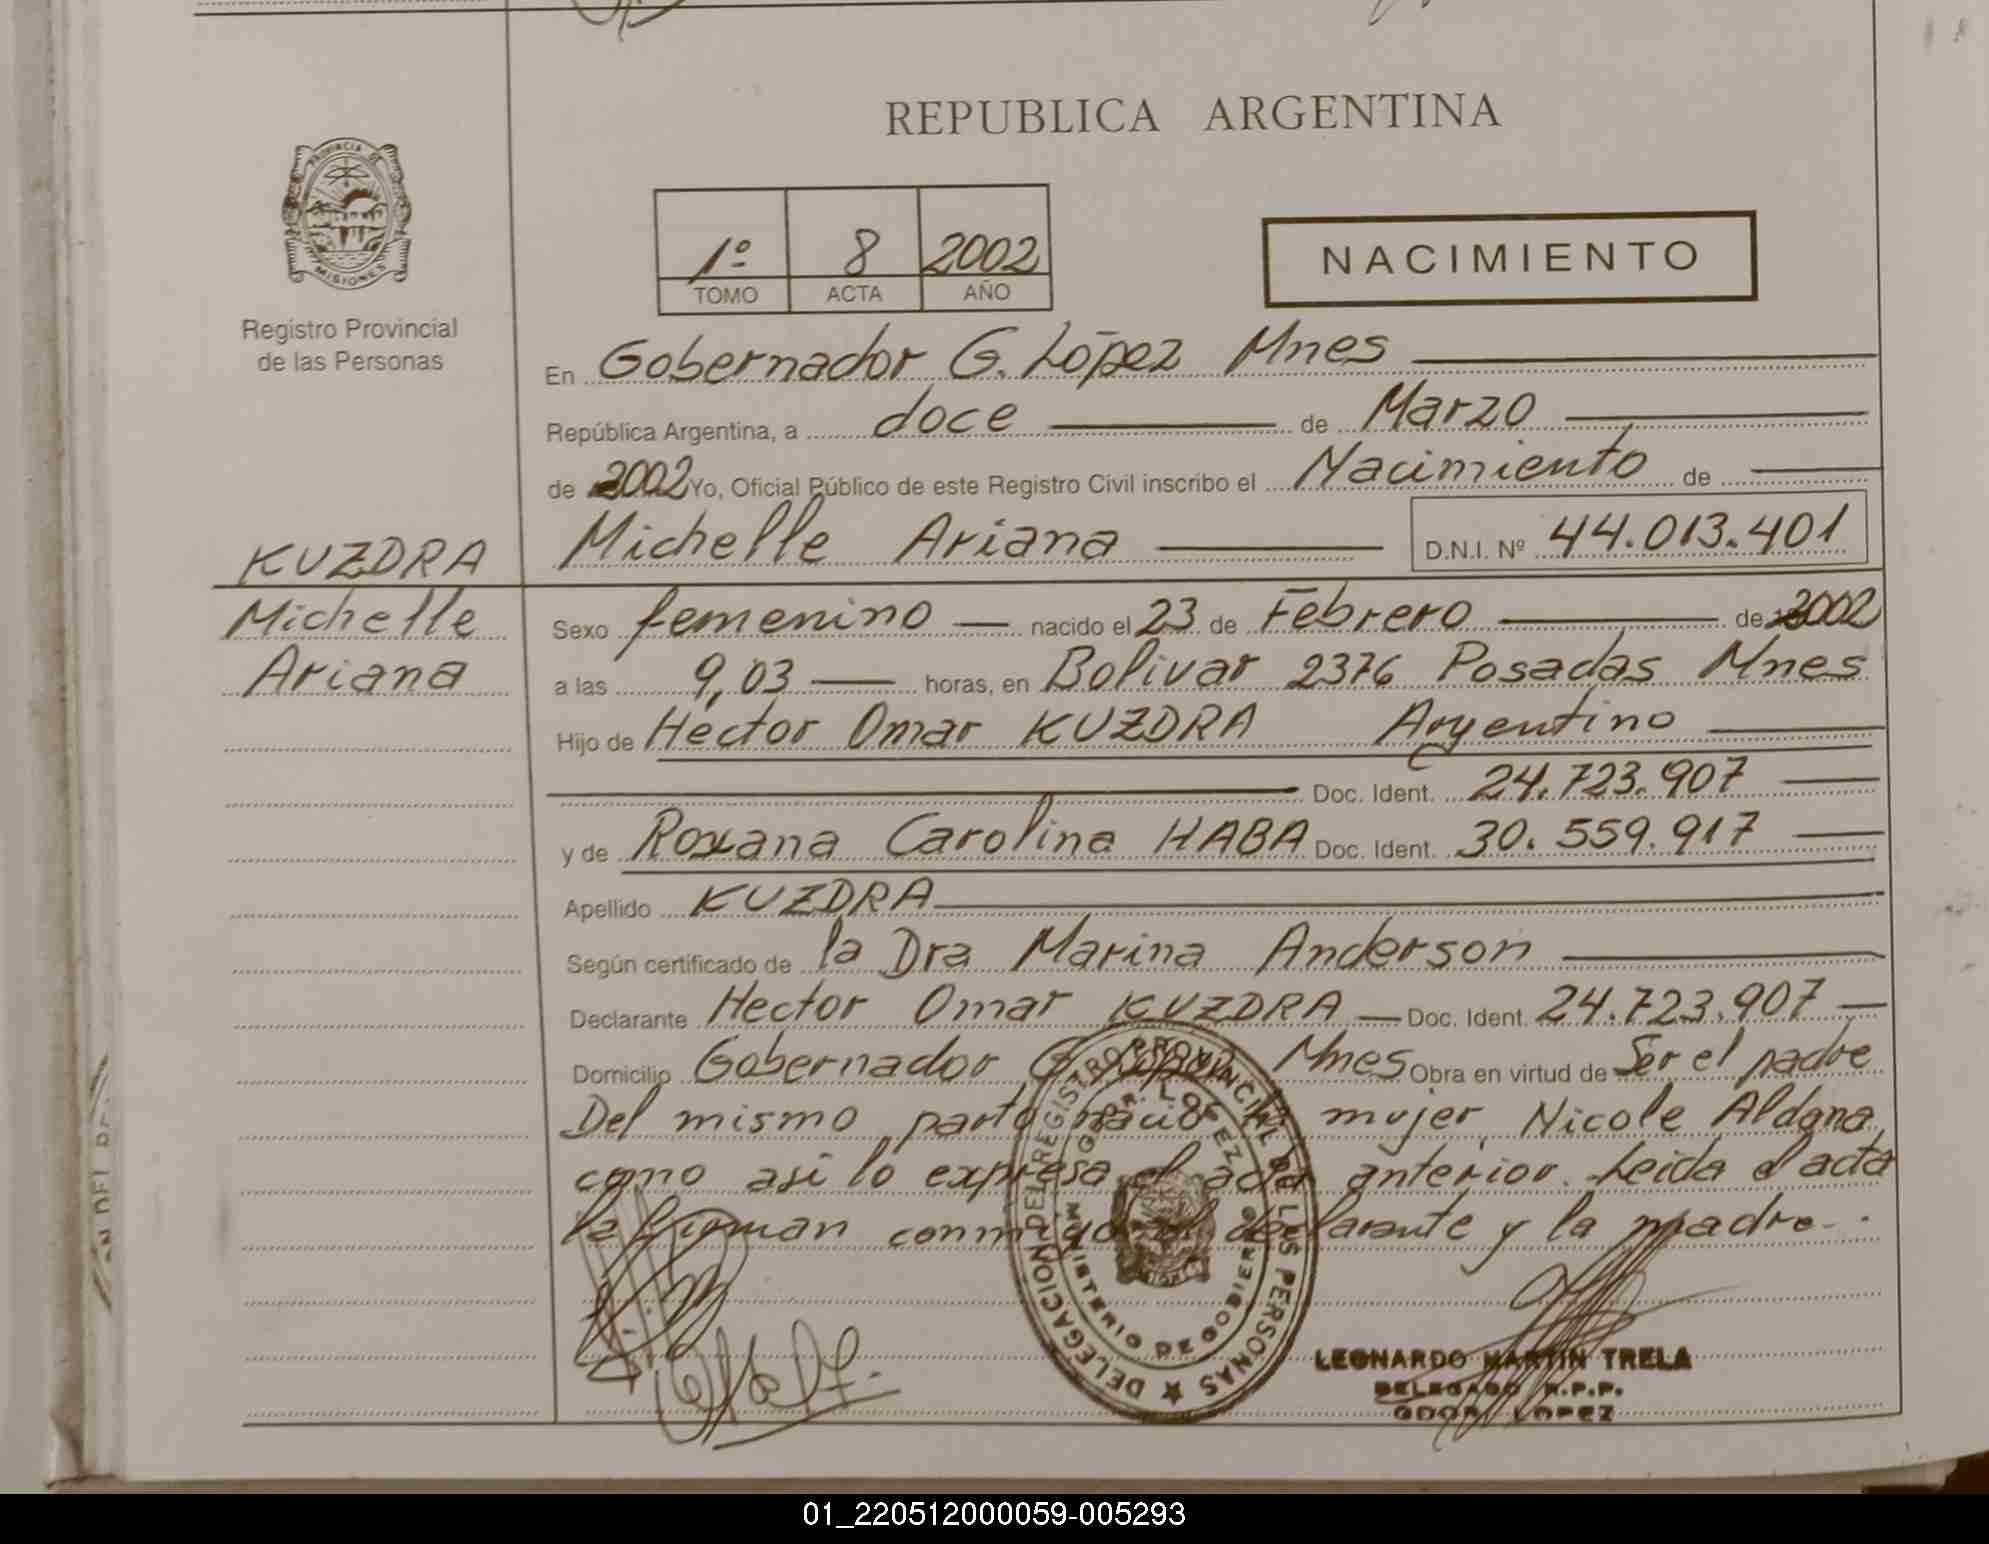 REPUBLICA ARGENTINA
PROVINCIA DE
MISIONES
Registro Provincial
de las Personas
1º 8 2002
TOMO ACTA AÑO
NACIMIENTO
En Gobernador G. López Mnes
República Argentina, a doce de Marzo
de 2002 Yo, Oficial Público de este Registro Civil inscribo el Nacimiento de
Michelle Ariana D.N.I. Nº 44.013.401
KUZDRA
Michelle
Ariana
Sexo femenino nacido el 23 de Febrero de 2002
a las 9,03 horas, en Bolivar 2376 Posadas Mnes
Hijo de Hector Omar KUZDRA Argentino
Doc. Ident. 24.723.907
y de Roxana Carolina HABA Doc. Ident. 30.559.917
Apellido KUZDRA
Según certificado de la Dra Marina Anderson
Declarante Hector Omar KUZDRA Doc. Ident. 24.723.907
Domicilio Gobernador G. López Mnes Obra en virtud de Ser el padre
Del mismo parto nació la mujer Nicole Aldana
como asi lo expresa el acta anterior. Leida el acta
la firman conmigo el declarante y la madre.
DELEGACION DEL REGISTRO PROVINCIAL DE LAS PERSONAS
GDOR. LOPEZ
MINISTERIO DE GOBIERNO
LEONARDO MARTIN TRELA
DELEGADO R.P.P.
GDOR. LOPEZ
01_220512000059-005293